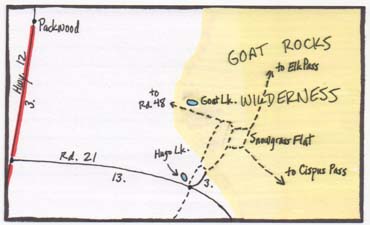 Packwood
GOAT ROCKS
to Elk Pass
Hwy. 12
3.
to
Rd. 48
Goat Lk.
WILDERNESS
Snowgrass Flat
Rd. 21
Hugo Lk.
13.
3.
to Cispus Pass